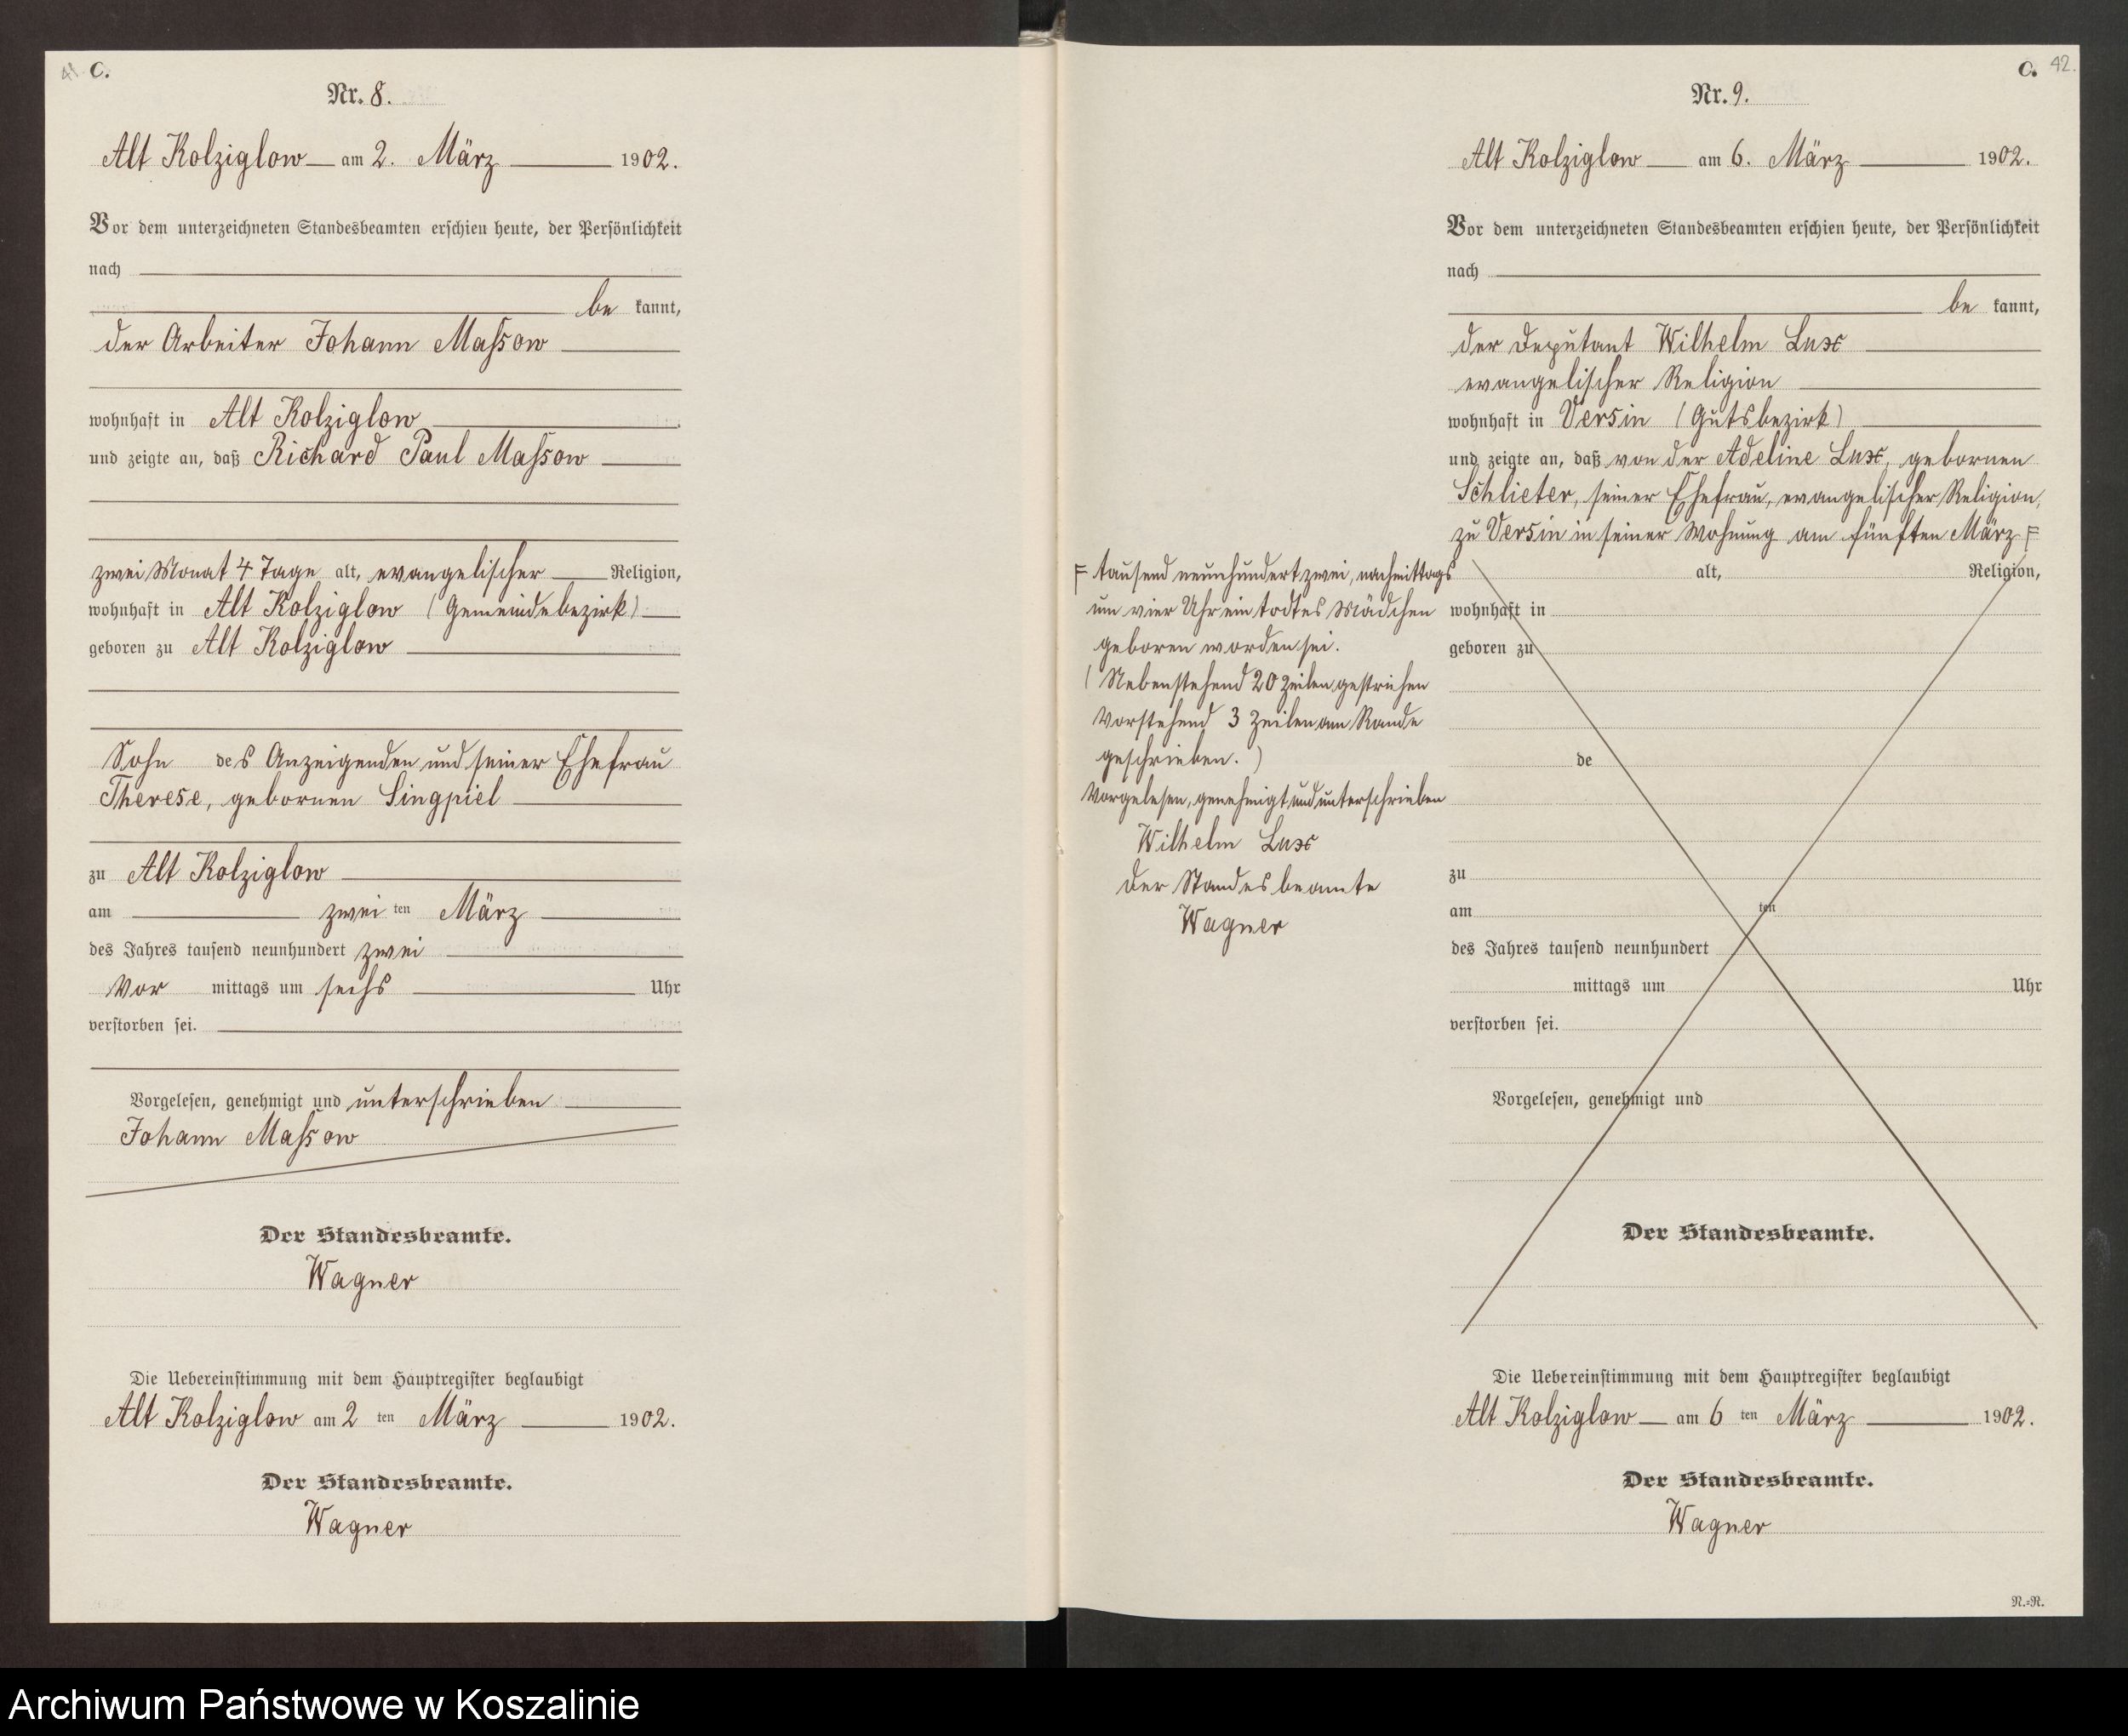 41 C.
Nr. 8.
Alt Kolziglow am 2. März 1902.
Vor dem unterzeichneten Standesbeamten erschien heute, der Persönlichkeit
nach
be kannt,
der Arbeiter Johann Massow
wohnhaft in Alt Kolziglow
und zeigte an, daß Richard Paul Massow
zwei Monat 4 Tage alt, evangelischer Religion,
wohnhaft in Alt Kolziglow (Gemeindebezirk)
geboren zu Alt Kolziglow
Sohn des Anzeigenden und seiner Ehefrau
Therese, gebornen Singpiel
zu Alt Kolziglow
am zwei ten März
des Jahres tausend neunhundert zwei
Vor mittags um sechs Uhr
verstorben sei.
Vorgelesen, genehmigt und unterschrieben
Johann Massow
Der Standesbeamte.
Wagner
Die Uebereinstimmung mit dem Hauptregister beglaubigt
Alt Kolziglow am 2 ten März 1902.
Der Standesbeamte.
Wagner
C. 42.
Nr. 9.
Alt Kolziglow am 6. März 1902.
Vor dem unterzeichneten Standesbeamten erschien heute, der Persönlichkeit
nach
be kannt,
der Deputant Wilhelm Lux
evangelischer Religion
wohnhaft in Versin (Gutsbezirk)
und zeigte an, daß von der Adeline Lux, gebornen
Schlieter, seiner Ehefrau, evangelischer Religion,
zu Versin in seiner Wohnung am fünften März F
F tausend neunhundert zwei, nachmittags
um vier Uhr ein todtes Mädchen
geboren worden sei.
(Nebenstehend 20 Zeilen gestrichen
Vorstehend 3 Zeilen am Rande
geschrieben.)
Vorgelesen, genehmigt und unterschrieben
Wilhelm Lux
Der Standesbeamte
Wagner
alt, Religion,
wohnhaft in
geboren zu
de
zu
am ten
des Jahres tausend neunhundert
mittags um Uhr
verstorben sei.
Vorgelesen, genehmigt und
Der Standesbeamte.
Die Uebereinstimmung mit dem Hauptregister beglaubigt
Alt Kolziglow am 6 ten März 1902.
Der Standesbeamte.
Wagner
N.=R.
Archiwum Państwowe w Koszalinie